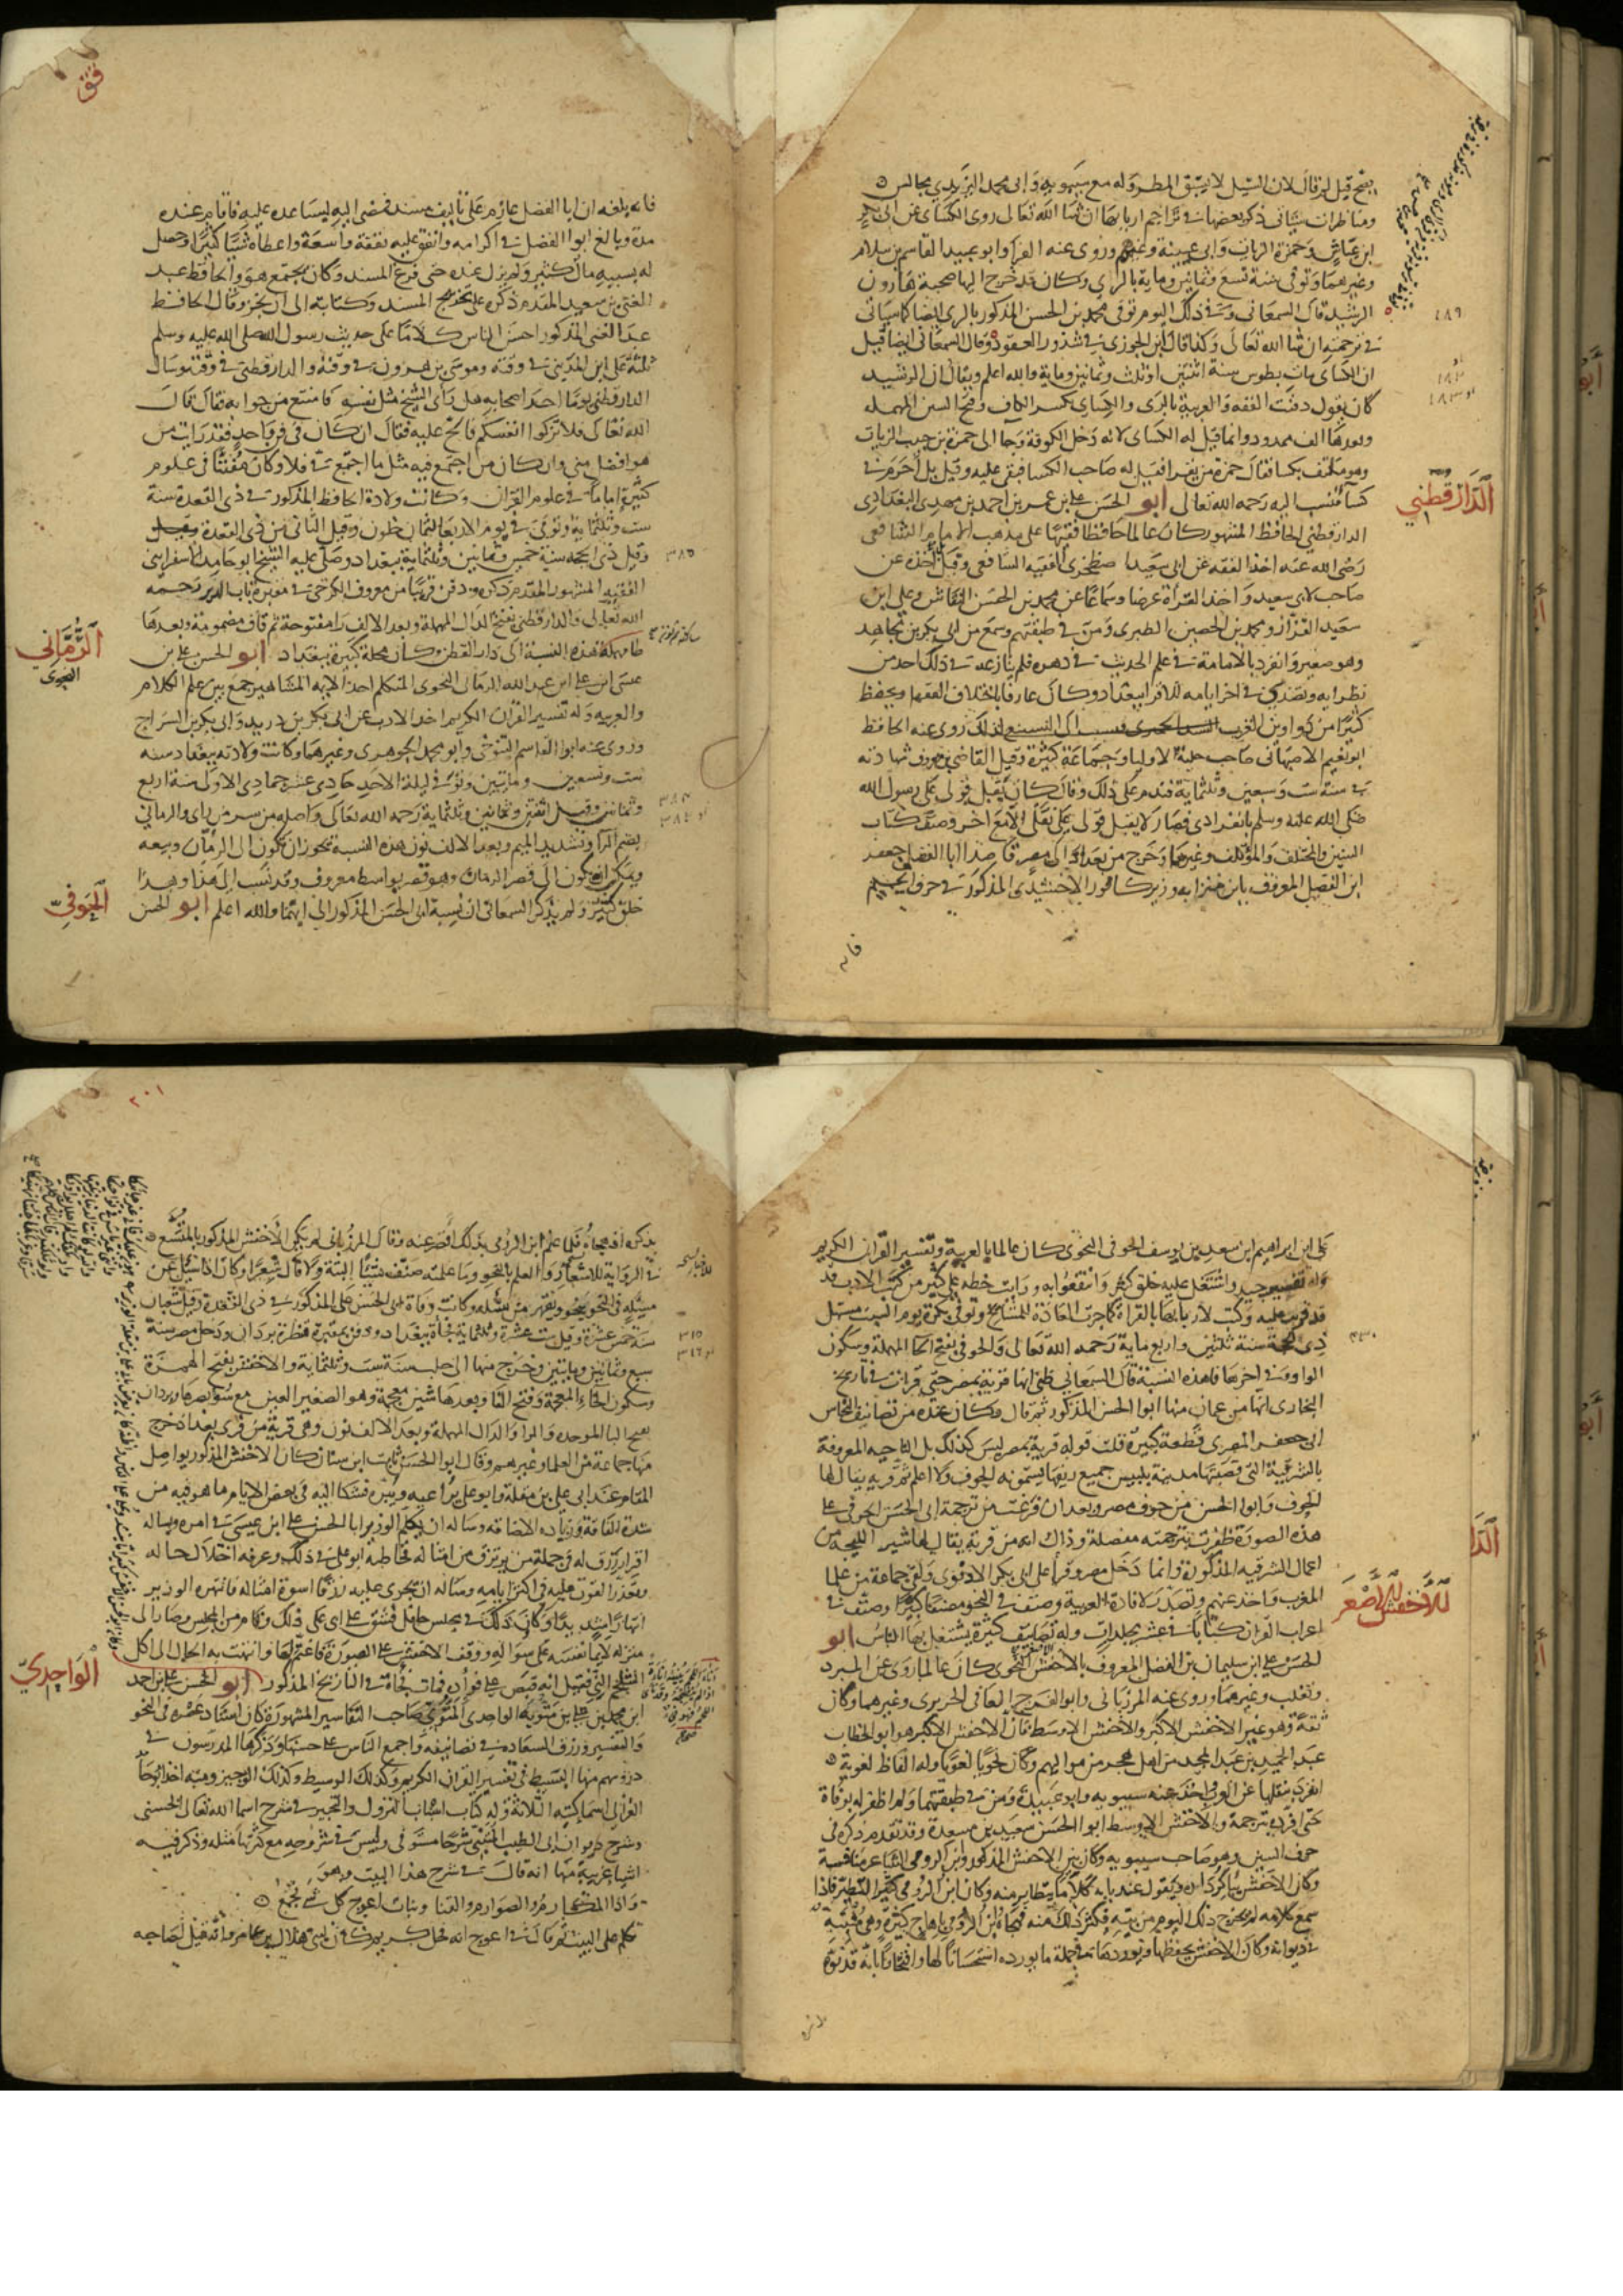 يفتح قيل له قال لان السيل لا يسبق المطر وله مع سيبويه وابى محمد اليزيدي مجالس
ومناظرات سياتى ذكر بعضها فى تراجم اربابها ان شا الله تعالى روى الكساى عن ابى بكر
ابن عياش وحمزة الزيات وابى عيينة وغيرهم وروى عنه الفرا وابو عبيد القاسم بن سلام
وغيرهما وتوفى سنة تسع وثمانين وماية بالري وكان قد خرج اليها صحبة هارون
الرشيد قال السمعانى وفى ذلك اليوم توفى محمد بن الحسن المذكور بالرى ايضا كما سياتى
فى ترجمته ان شا الله تعالى وكذا قال ابن الجوزى فى شذور العقود وقال السمعانى ايضا قيل
ان الكساى مات بطوس سنة اثنتين او ثلث وثمانين وماية والله اعلم ويقال ان الرشيد
كان يقول دفنت الفقه والعربية بالرى والكساى بكسر الكاف وفتح السين المهمله
وبعدها الف ممدودة وانما قيل له الكساى لانه دخل الكوفة وجا الى حمزة بن حبيب الزيات
وهو ملتف بكسا فقال حمزة من يقرا فقيل له صاحب الكسا فبقى عليه وقيل بل احرم فى
كسآ فنسب اليه رحمه الله تعالى ابو الحسن على بن عمر بن احمد بن مهدى البغدادى
الدارقطني الحافظ المشهور كان عالما حافظا فقيها على مذهب الامام الشافعى
رضى الله عنه اخذ الفقه عن ابى سعيد الاصطخرى الفقيه الشافعى وقيل اخذه عن
صاحب لابى سعيد واخذ القرأة عرضا وسماعا عن محمد بن الحسن النقاش وعلى ابن
سعيد القزاز ومحمد بن الحصين الطبرى ومن فى طبقتهم وسمع من ابى بكر بن مجاهد
وهو صغير وانفرد بالامامة فى علم الحديث فى دهره فلم ينازعه فى ذلك احد من
نظرايه وتصدر فى اخر ايامه للاقرا ببغداد وكان عارفا باختلاف الفقها ويحفظ
كثيرا من دواوين العرب لذلك روى عنه الحافظ
ابو نعيم الاصبهانى صاحب حلية الاوليا وجماعة كثيرة وقبل القاضى بن معروف شهادته
فى سنة ست وسبعين وثلثماية فندم على ذلك وقال كان يقبل قولى على رسول الله
صلى الله عليه وسلم بانفرادى فصار لا يقبل قولى على نقلى الا مع اخر وصنف كتاب
السنن والمختلف والمؤتلف وغيرهما وخرج من بغداد الى مصر قاصدا ابا الفضل جعفر
ابن الفضل المعروف بابن حنزابه وزير كافور الاخشيدى المذكور فى حرف الجيم
فانه
الدارقطني
١٨٩
فانه بلغه ان ابا الفضل عازم على تاليف مسند فمضى اليه ليساعده عليه فاقام عنده
مدة وبالغ ابو الفضل فى اكرامه وانفق عليه نفقة واسعة واعطاه شيئا كثيرا وحصل
له بسببه مال كثير ولم يزل عنده حتى فرغ المسند وكان يجتمع هو والحافظ عبد
الغنى بن سعيد المقدم ذكره على تخريج المسند وكتابته الى ان نجز وقال الحافظ
عبد الغنى المذكور احسن الناس كلاما على حديث رسول الله صلى الله عليه وسلم
ثلثة على ابن المدينى فى وقته وموسى بن هرون فى وقته والدارقطنى فى وقته وسال
الدارقطنى يوما احد اصحابه هل راى الشيخ مثل نفسه فامتنع من جوابه فقال قال
الله تعالى فلا تزكوا انفسكم فالح عليه فقال ان كان فى فن واحد فقد رايت من
هو افضل منى وان كان من اجتمع فيه مثل ما اجتمع فى فلا وكان مفننا فى علوم
كثيرة اماما فى علوم القران وكانت ولادة الحافظ المذكور فى ذى القعدة سنة
ست وثلثماية وتوفى فى يوم الاربعا لثمان خلون وقيل الثانى من ذى القعدة
وقيل ذى الحجه سنة خمس وثمانين وثلثماية ببغداد وصلى عليه الشيخ ابو حامد الاسفراينى
الفقيه المشهور المقدم ذكره ودفن قريبا من معروف الكرخى فى مقبرة باب الدير رحمه
الله تعالى والدارقطنى بفتح الدال المهملة وبعد الالف را مفتوحة ثم قاف مضمومة وبعدها
طا مهملة هذه النسبة الى دار القطن وكان محلة كبيرة ببغداد ابو الحسن على بن
عيسى ابن على ابن عبد الله الرمانى النحوى المتكلم احد الايمه المشاهير جمع بين علم الكلام
والعربيه وله تفسير القران الكريم اخذ الادب عن ابى بكر بن دريد وابى بكر بن السراج
وروى عنه ابو القاسم التنوخى وابو محمد الجوهرى وغيرهما وكانت ولادته ببغداد سنه
ست وتسعين ومايتين وتوفى ليلة الاحد حادى عشر جمادى الاول سنة اربع
وثمانين وقيل اثنتين وثمانين وثلثماية رحمه الله تعالى واصله من سر من راى والرمانى
بضم الرا وتشديد الميم وبعد الالف نون هذه النسبة يجوز ان تكون الى الرمان وبيعه
ويمكن ان تكون الى قصر الرمان وهو قصر بواسط معروف وقد نسب الى هذا وهذا
خلق كثير ولم يذكر السمعانى ان نسبة ابى الحسن المذكور الى ايهما والله اعلم ابو الحسن
الرماني
النحوى
الحوفي
٣٨٥
٣٨٤
على ابن ابراهيم ابن سعيد بن يوسف الحوفى النحوى كان عالما بالعربية وتفسير القران الكريم
وله تفسير جيد واشتغل عليه خلق كثير وانتفعوا به ورايت خطه على كثير من كتب الادب قد
قرئ عليه وكتب لاربابها بالقراة كما جرت العادة للمشايخ وتوفى بكرة يوم السبت مستهل
ذى الحجة سنة ثلثين واربع ماية رحمه الله تعالى والحوفى بفتح الحا المهملة وسكون
الواو وفى اخرها فا هذه النسبة قال السمعانى ظنى انها قرية بمصر حتى قرات فى تاريخ
البخارى انها من عمان منها ابو الحسن المذكور ثم قال وكان عنده من تصانيف النحاس
ابى جعفر المصرى قطعة كبيرة قلت قوله قرية بمصر ليس كذلك بل الناحيه المعروفة
بالشرقية التى قصبتها مدينة بلبيس جميع ريفها يسمونه الحوف ولا اعلم ثم قرية يقال لها
الحوف وابو الحسن من حوف مصر وبعد ان فرغت من ترجمة ابى الحسن الحوفى على
هذه الصورة ظفرت بترجمته مفصلة وذاك انه من قرية يقال لها شبرا اللنجه من
اعمال الشرقيه المذكورة وانما دخل مصر وقرا على ابى بكر الادفوى ولقى جماعة من علما
المغرب واخذ عنهم وتصدر لافادة العربية وصنف فى النحو مصنفا كبيرا وصنف فى
اعراب القران كتابا فى عشر مجلدات وله تصانيف كثيرة يشتغل بها الناس ابو
الحسن على ابن سليمان بن الفضل المعروف بالاخفش النحوى كان عالما روى عن المبرد
وثعلب وغيرهما وروى عنه المرزبانى وابو الفرج المعافى الحريرى وغيرهما وكان
ثقة وهو غير الاخفش الاكبر والاخفش الاوسط فان الاخفش الاكبر هو ابو الخطاب
عبد الحميد بن عبد المجيد من اهل هجر من مواليهم وكان نحويا لغويا وله الفاظ لغوية
انفرد بنقلها عن العرب واخذ عنه سيبويه وابو عبيدة ومن فى طبقتهما ولم اظفر له بوفاة
حتى افرده بترجمة والاخفش الاوسط ابو الحسن سعيد بن مسعدة وقد تقدم ذكره فى
حرف السين وهو صاحب سيبويه وكان بين الاخفش المذكور وابن الرومى الشاعر منافسة
وكان الاخفش يباكر داره ويقول عند بابه كلاما يتطير منه وكان ابن الرومى كثير التطير فاذا
سمع كلامه لم يخرج ذلك اليوم من بيته فكثر ذلك منه فهجاه ابن الرومى باهاج كثيرة وهى مثبتة
فى ديوانه وكان الاخفش يحفظها ويوردها فى جملة ما يورده استحسانا لها وافتخارا بانه قد نوه
الاخفش الاصغر
٤٣٠
٢٠١
بذكره اذ هجاه فلما علم ابن الرومى بذلك اقصر عنه وقال المرزبانى لم يكن الاخفش المذكور بالمتسع
فى الرواية للاشعار والعلم بالنحو وما علمته صنف شيئا البتة ولا قال شعرا وكان اذا سئل عن
مسئلة فى النحو ضجر وانتهر من يسئله وكانت وفاة ابى الحسن على المذكور فى ذى القعدة وقيل شعبان
سنة خمس عشرة وقيل ست عشرة وثلثماية فجأة ببغداد ودفن بمقبرة قنطرة بردان ودخل مصر سنة
سبع وثمانين ومايتين وخرج منها الى حلب سنة ست وثلثماية والاخفش بفتح الهمزة
وسكون الخاء المعجمة وفتح الفا وبعدها شين معجمة وهو الصغير العين مع سوء بصرها وبردان
بفتح البا الموحده والرا والدال المهملة وبعد الالف نون وهى قرية من قرى بغداد خرج
منها جماعة من العلما وغيرهم وقال ابو الحسن ثابت ابن سنان كان الاخفش المذكور يواصل
المقام عند ابى على بن مقلة وابو على يراعيه ويبره فشكا اليه فى بعض الايام ما هو فيه من
شدة الفاقة وزيادة الاضاقه وساله ان يكلم الوزير ابا الحسن على ابن عيسى فى امره ويساله
اقرار رزق له فى جملة من يرتزق من امثاله فخاطبه ابو على فى ذلك وعرفه اختلال حاله
وتعذر القوت عليه فى اكثر ايامه وساله ان يجرى عليه رزقا اسوة امثاله فانتهره الوزير
انتهارا شديدا وكان ذلك فى مجلس حافل فشق على ابى على ذلك وقام من المجلس وصار الى
منزله لايما نفسه على سواله ووقف الاخفش على الصورة فاغتم لها وانتهت به الحال الى اكل
الشلجم النى فقيل انه قبض على فواده فمات فجأة فى التاريخ المذكور ابو الحسن على بن احمد
ابن محمد بن على بن متويه الواحدى المتوى صاحب التفاسير المشهورة كان استاد عصره فى النحو
والتفسير ورزق السعادة فى تصانيفه واجمع الناس على حسنها وذكرها المدرسون فى
دروسهم منها البسيط فى تفسير القران الكريم وكذلك الوسيط وكذلك الوجيز ومنه اخذ ابو حامد
الغزالى اسما كتبه الثلاثة وله كتاب اسباب النزول والتحبير فى شرح اسما الله تعالى الحسنى
وشرح ديوان ابى الطيب المتنبى شرحا مستوفى وليس فى شروحه مع كثرتها مثله وذكر فيه
اشيا غريبة منها انه قال فى شرح هذا البيت وهو
واذا المكارم والصوارم والقنا وبنات اعوج كل شى يجمع
تكلم على البيت ثم قال فى اعوج انه فحل كريم كان لبنى هلال بن عامر وانه قيل لصاحبه
الواحدي
٣١٥
٣١٦